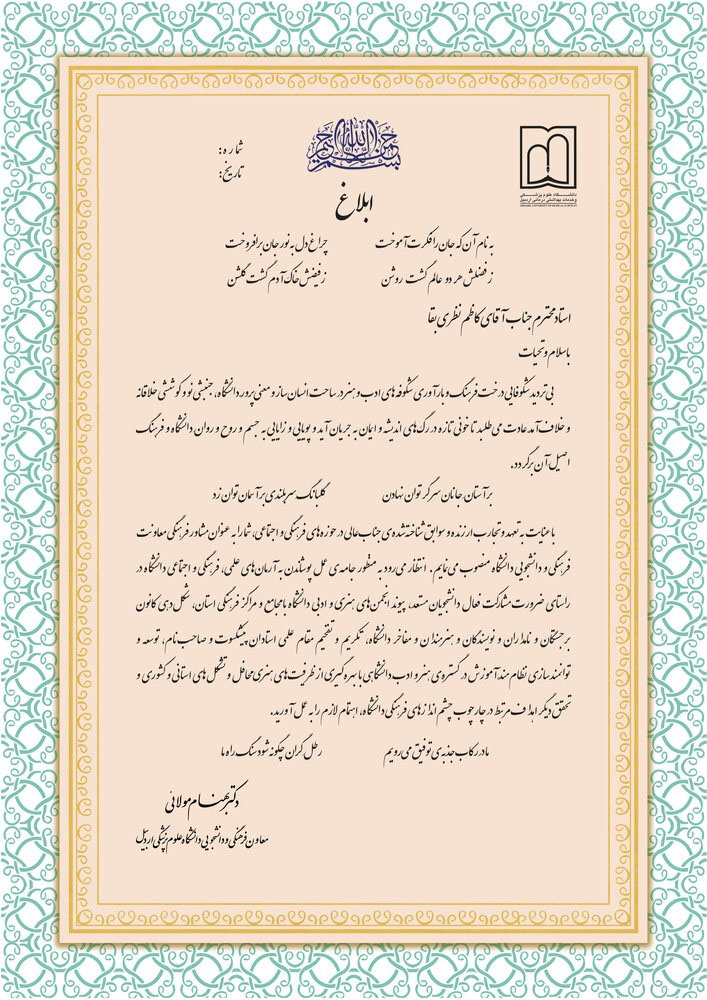 بسم الله الرحمن الرحیم
شماره:
تاریخ:
دانشگاه علوم پزشکی
و خدمات بهداشتی درمانی اردبیل
ابلاغ
به نام آن که جان را فکرت آموخت چراغ دل به نور جان برافروخت
ز فضلش هر دو عالم گشت روشن ز فیضش خاک آدم گشت گلشن
استاد محترم جناب آقای کاظم نظری بقا
با سلام و تحیات
بی تردید شکوفایی درخت فرهنگ و بارآوری شکوفه های ادب و هنر در ساحت انسان ساز و معنی پرور دانشگاه، جنبشی نو و کوششی خلاقانه
و خلاف آمد عادت می طلبد تا خونی تازه در رگ های اندیشه و ایمان به جریان آید و پویایی و زایایی به جسم و روح و روان دانشگاه و فرهنگ
اصیل آن برگردد.
بر آستان جانان سر گر توان نهادن گلبانگ سربلندی بر آسمان توان زد
با عنایت به تعهد و تجارب ارزنده و سوابق شناخته شده ی جناب عالی در حوزه های فرهنگی و اجتماعی، شما را به عنوان مشاور فرهنگی معاونت
فرهنگی و دانشجویی دانشگاه منصوب می نمایم. انتظار می رود به منظور جامه ی عمل پوشاندن به آرمان های علمی، فرهنگی و اجتماعی دانشگاه در
راستای ضرورت مشارکت فعال دانشجویان مستعد، پیوند انجمن های هنری و ادبی دانشگاه با مجامع و مراکز فرهنگی استان، شکل دهی کانون
برجستگان و نامداران و نویسندگان و هنرمندان و مفاخر دانشگاه، تکریم و تفخیم مقام علمی استادان پیشکسوت و صاحب نام، توسعه و
توانمندسازی نظام مند آموزش در گستره ی هنر و ادب دانشگاهی با بهره گیری از ظرفیت های هنری محافل و تشکل های استانی و کشوری و
تحقق دیگر اهداف مرتبط در چارچوب چشم اندازهای فرهنگی دانشگاه، اهتمام لازم را به عمل آورید.
ما در رکاب جذبه ی توفیق می رویم رطل گران چگونه شود سنگ راه ما
دکتر بهنام مولائی
معاون فرهنگی و دانشجویی دانشگاه علوم پزشکی اردبیل